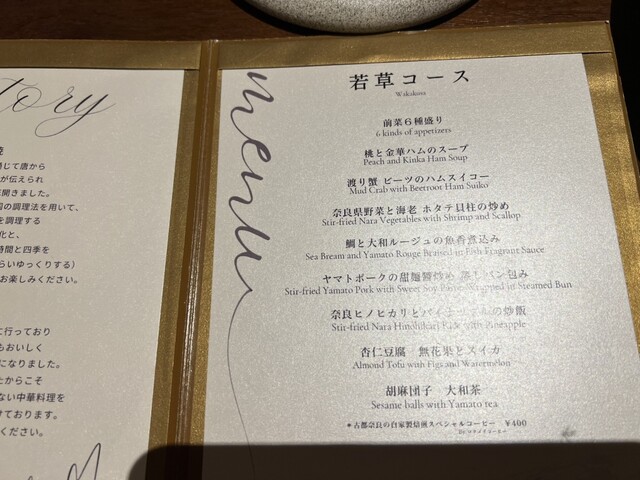 tory
じて唐から
が伝えられ
開きました。
の調理法を用いて、
を調理する
化と、
時間と四季を
らいゆっくりする）
お楽しみください。
に行っており
もおいしく
になりました。
たからこそ
ない中華料理を
けております。
ください。
menu
若草コース
Wakakusa
前菜６種盛り
6 kinds of appetizers
桃と金華ハムのスープ
Peach and Kinka Ham Soup
渡り蟹 ビーツのハムスイコー
Mud Crab with Beetroot Ham Suiko
奈良県野菜と海老 ホタテ貝柱の炒め
Stir-fried Nara Vegetables with Shrimp and Scallop
鯛と大和ルージュの魚香煮込み
Sea Bream and Yamato Rouge Braised in Fish Fragrant Sauce
ヤマトポークの甜麺醤炒め 蒸しパン包み
Stir-fried Yamato Pork with Sweet Soy Wrapped in Steamed Bun
奈良ヒノヒカリとパイナップルの炒飯
Stir-fried Nara Hinohikari Rice with Pineapple
杏仁豆腐 無花果とスイカ
Almond Tofu with Figs and Watermelon
胡麻団子 大和茶
Sesame balls with Yamato tea
*古都奈良の自家製焙煎スペシャルコーヒー ¥400